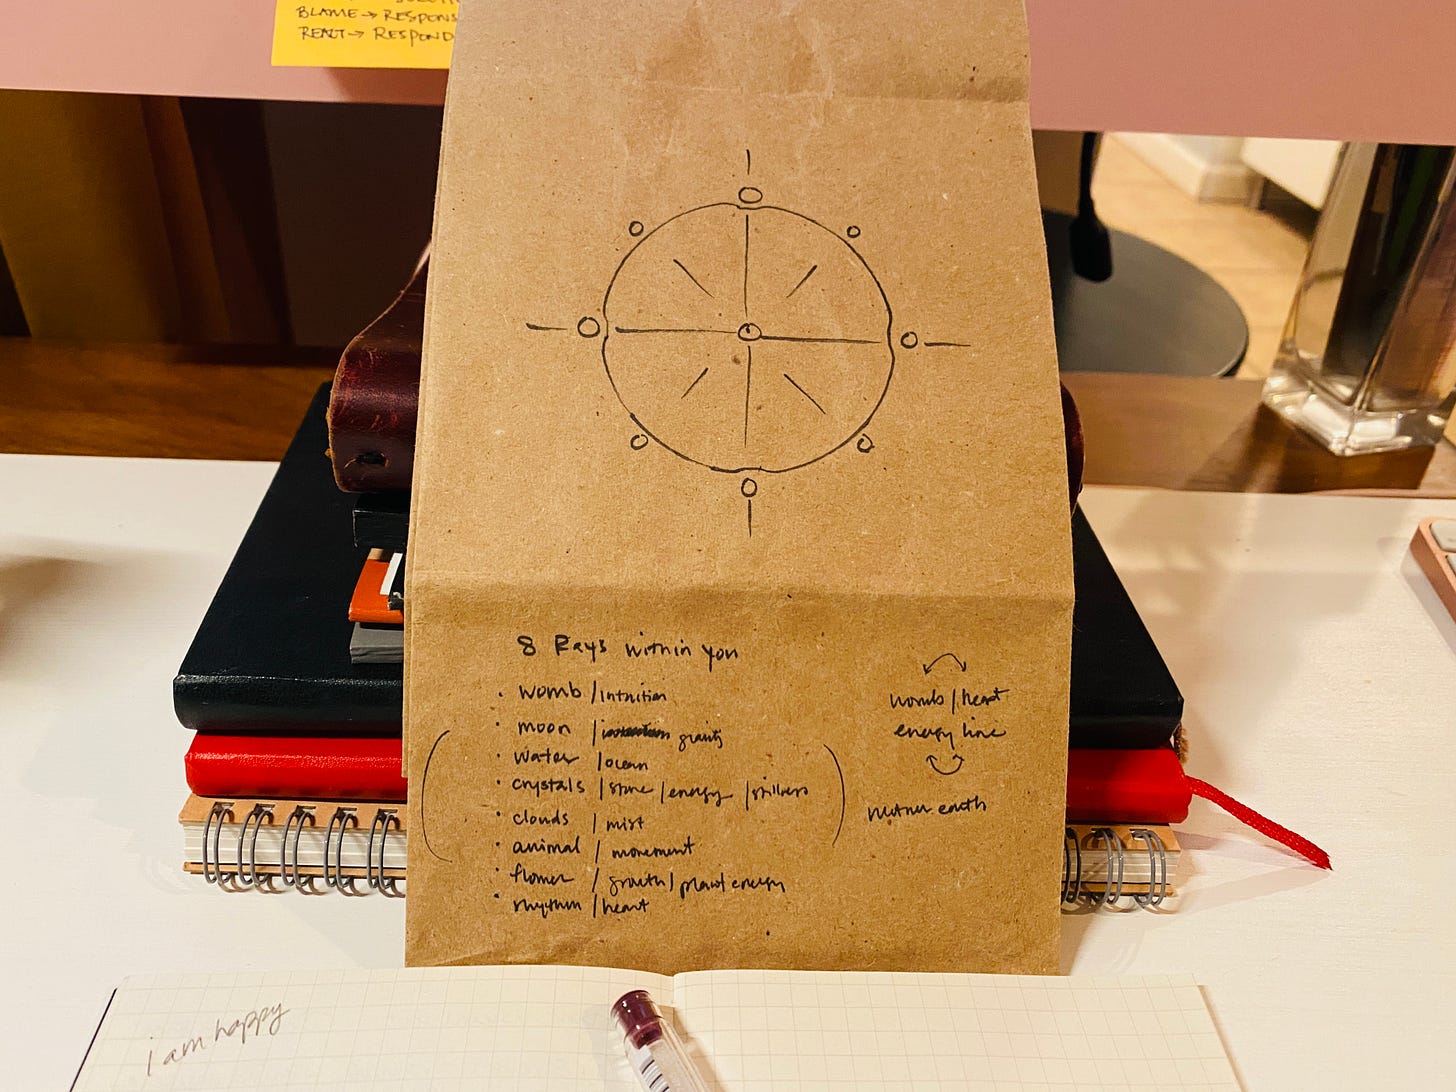 BLAME → RESPONS
REACT → RESPOND
8 Rays within you
• womb / intuition
• moon / gravity
• water / ocean
• crystals / stone / energy / stillness
• clouds / mist
• animal / movement
• flower / growth / plant energy
• rhythm / heart
womb / heart
energy line
mother earth
i am happy